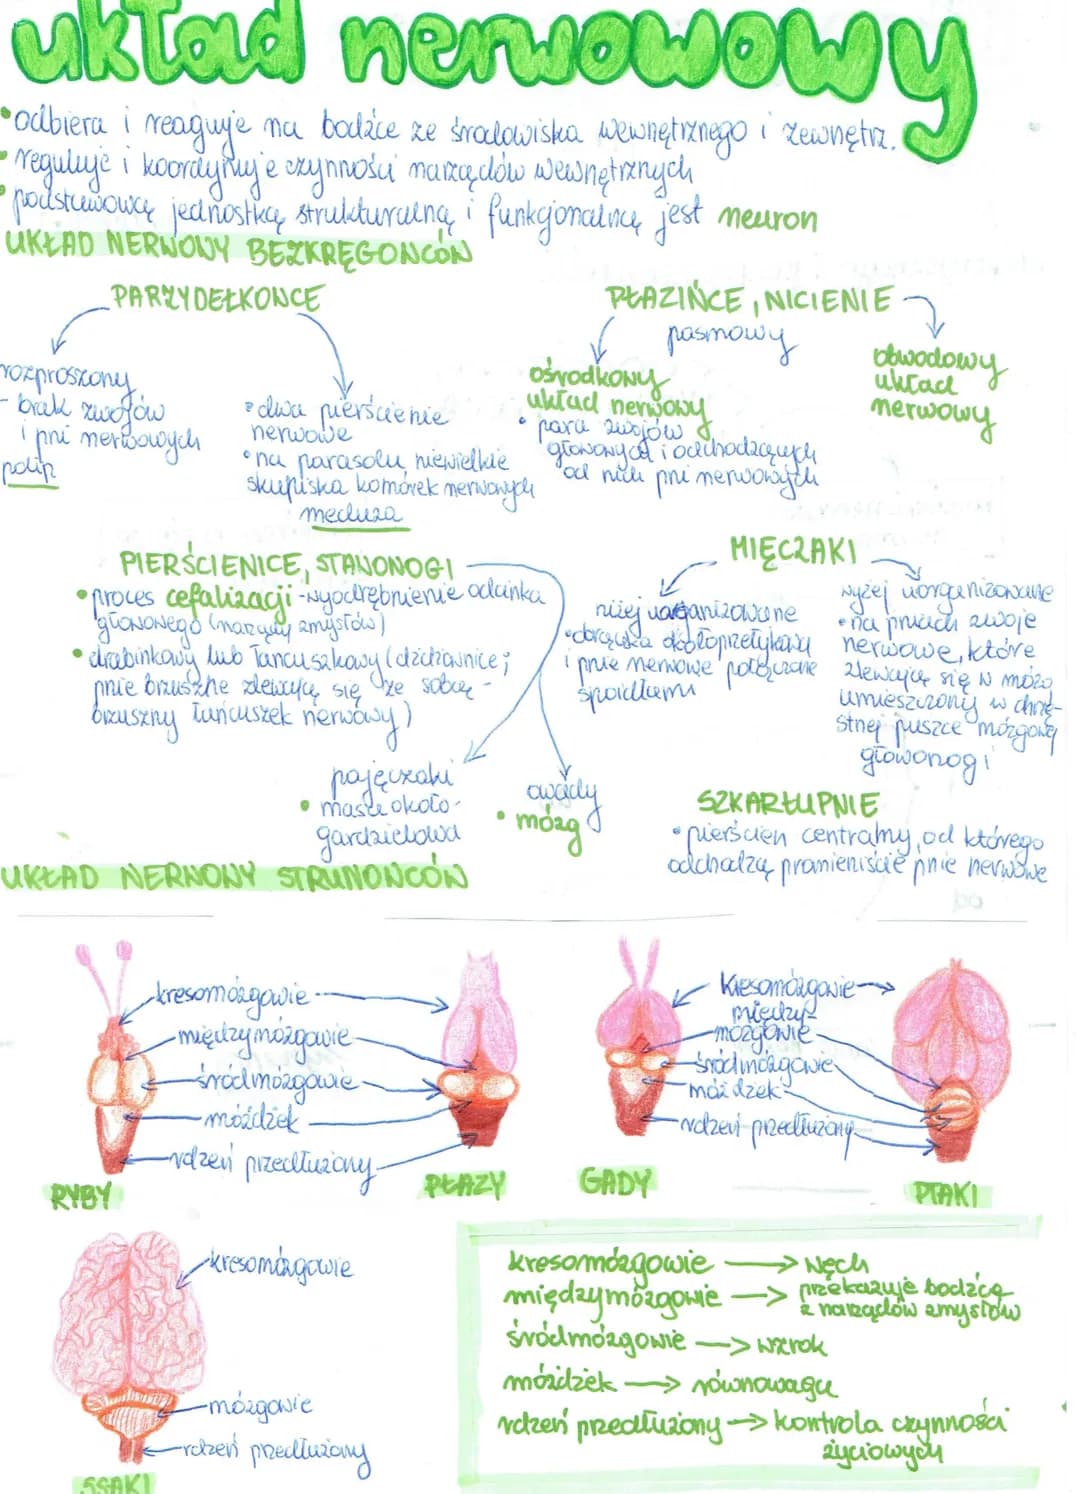 układ nerwowy
• odbiera i reaguje na bodźce ze środowiska wewnętrznego i zewnętrz.
• reguluje i koordynuje czynności narządów wewnętrznych
• podstawową jednostką strukturalną i funkcjonalną jest neuron
UKŁAD NERWOWY BEZKRĘGOWCÓW
PARZYDEŁKOWCE
rozproszony
- brak zwojów
i pni nerwowych
polip
• dwa pierścienie
nerwowe
• na parasolu niewielkie
skupiska komórek nerwowych
meduza
PŁAZIŃCE, NICIENIE
pasmowy
ośrodkowy
układ nerwowy
• para zwojów
głowowych i odchodzących
od nich pni nerwowych
obwodowy
układ
nerwowy
PIERŚCIENICE, STAWONOGI
• proces cefalizacji - wyodrębnienie odcinka
głowowego (narządy zmysłów)
• drabinkowy lub łańcuszkowy (dżdżownice;
pnie brzuszne zlewają się ze sobą -
brzuszny łańcuszek nerwowy)
pajęczaki
• masa około-
gardzielowa
owady
• mózg
MIĘCZAKI
niżej uorganizowane
• obrączka okołoprzełykowa
i pnie nerwowe połączone
spoidłami
wyżej uorganizowane
• na pniach zwoje
nerwowe, które
zlewają się w mózg
umieszczony w chrzę-
stnej puszce mózgowej
głowonogi
SZKARŁUPNIE
• pierścień centralny, od którego
odchodzą promieniście pnie nerwowe
UKŁAD NERWOWY STRUNOWCÓW
kresomózgowie
międzymózgowie
śródmózgowie
móżdżek
rdzeń przedłużony
RYBY
PŁAZY
Kresomózgowie
między-
mózgowie
śródmózgowie
móżdżek
rdzeń przedłużony
GADY
PTAKI
kresomózgowie
mózgowie
rdzeń przedłużony
SSAKI
kresomózgowie → węch
międzymózgowie → przekazuje bodźce
z narządów zmysłów
śródmózgowie → wzrok
móżdżek → równowaga
rdzeń przedłużony → kontrola czynności
życiowych